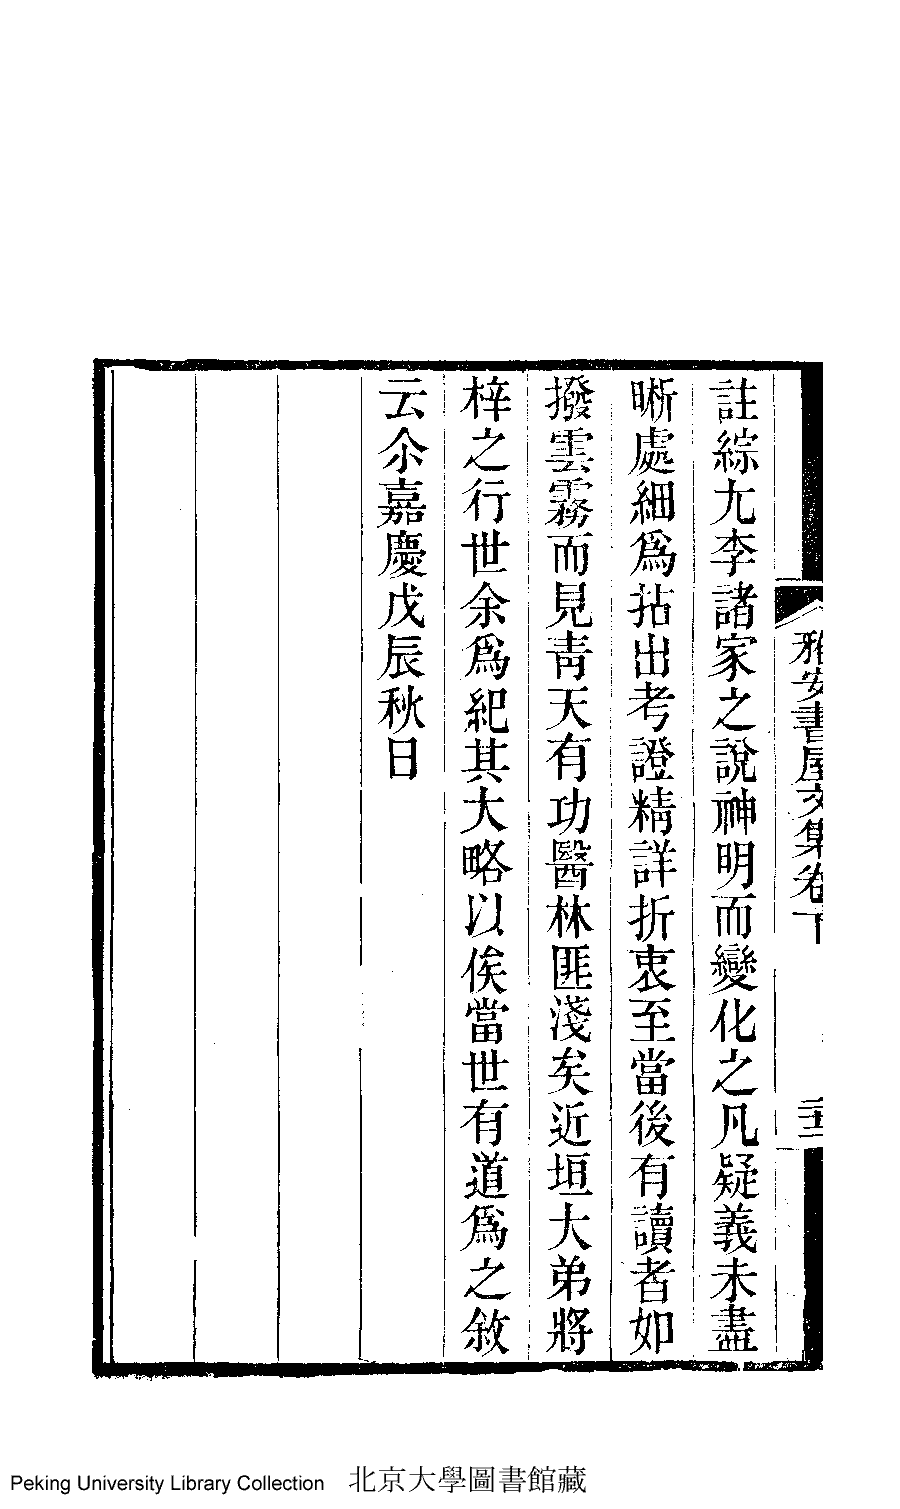 註綜尢李諸家之說神明而變化之凡疑義未盡
晰處細爲拈出考證精詳折衷至當後有讀者如
撥雲霧而見靑天有功醫林匪淺矣近垣大弟將
梓之行世余爲紀其大略以俟當世有道爲之敘
云尒嘉慶戊辰秋日
雅安書屋文集卷下
二十二
Peking University Library Collection 北京大學圖書館藏